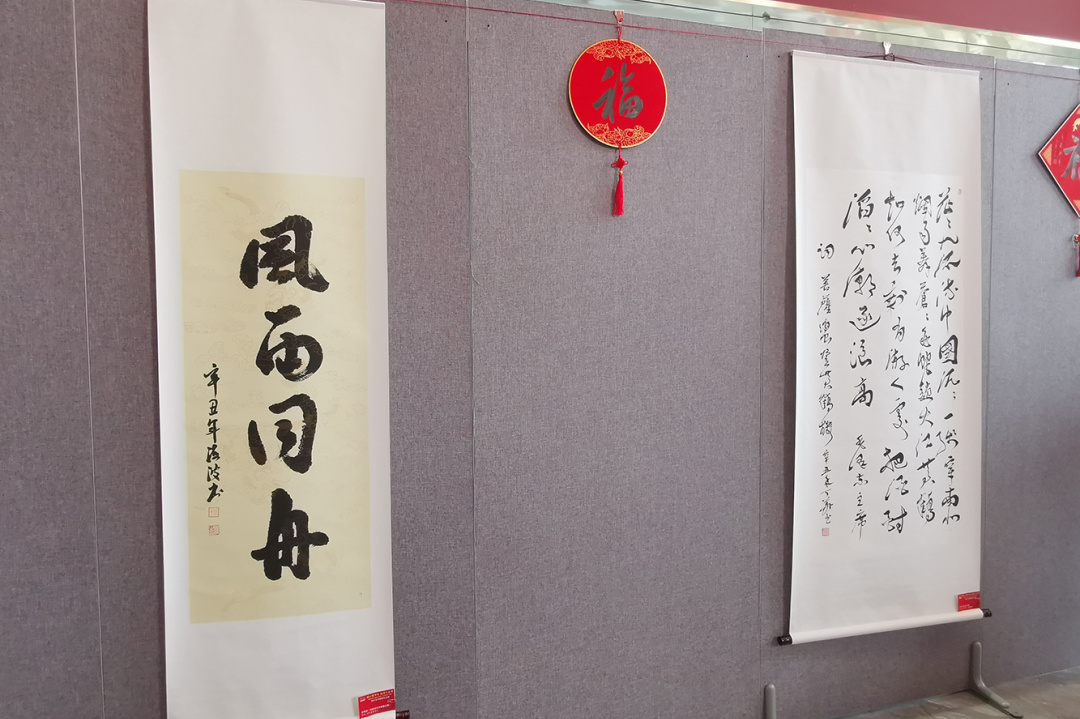 風雨同舟
辛丑年海波书
福
茫々九派流中國沉々一线穿南北
烟雨莽蒼々龟蛇鎖大江黄鶴
知何去剩有游人处把酒酹
滔々心潮逐浪高 毛泽东主席
词 菩薩蛮登黄鹤楼 辛丑年
福